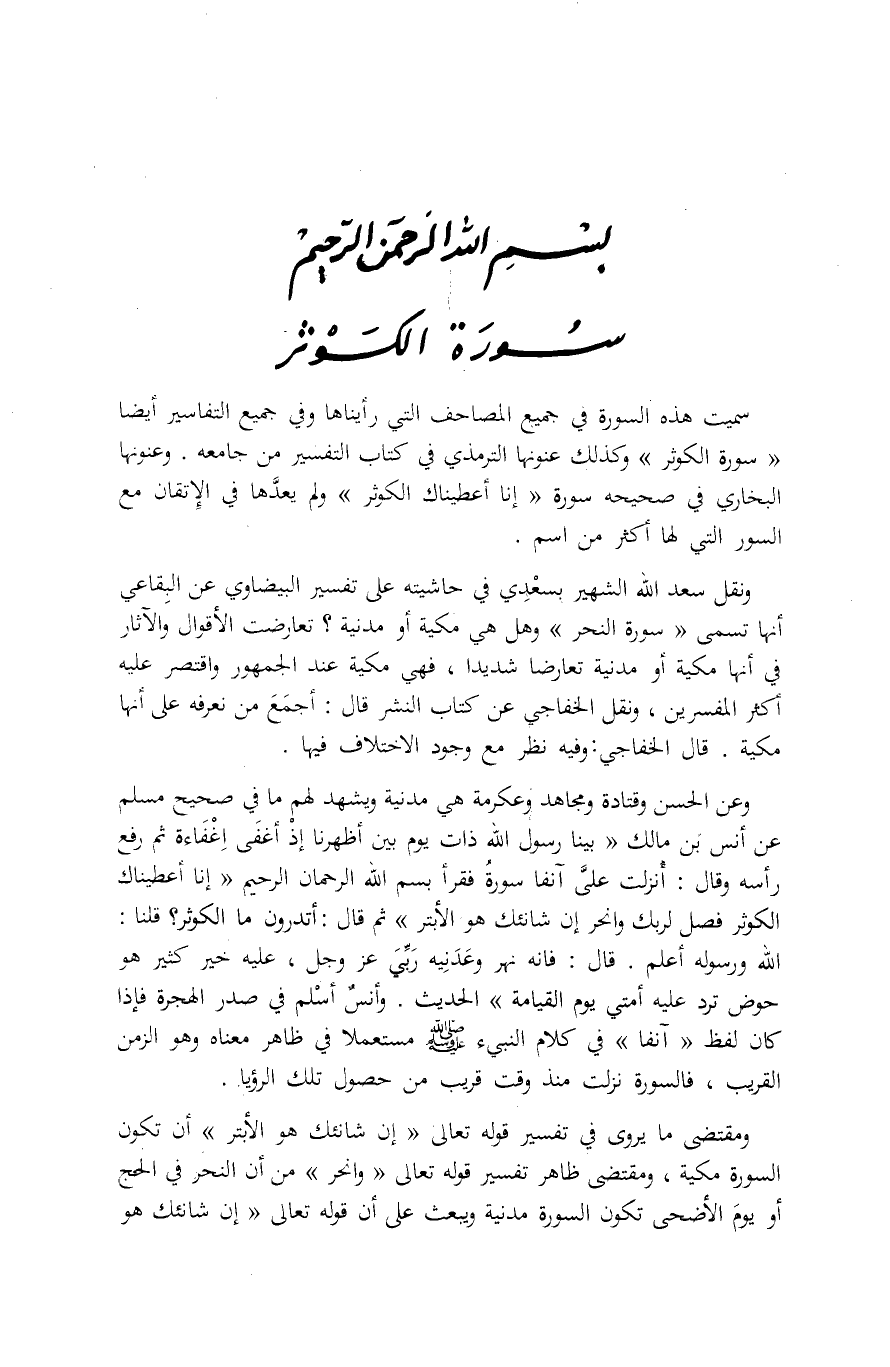 بِسْمِ اللهِ الرَّحْمَنِ الرَّحِيمِ
سُورَةُ الْكَوْثَرِ
سميت هذه السورة في جميع المصاحف التي رأيناها وفي جميع التفاسير أيضا
« سورة الكوثر » وكذلك عنونها الترمذي في كتاب التفسير من جامعه . وعنونها
البخاري في صحيحه سورة « إنا أعطيناك الكوثر » ولم يعدَّها في الإتقان مع
السور التي لها أكثر من اسم .
ونقل سعد الله الشهير بسعْدِي في حاشيته على تفسير البيضاوي عن البِقاعي
أنها تسمى « سورة النحر » وهل هي مكية أو مدنية ؟ تعارضت الأقوال والآثار
في أنها مكية أو مدنية تعارضا شديدا ، فهي مكية عند الجمهور واقتصر عليه
أكثر المفسرين ، ونقل الخفاجي عن كتاب النشر قال : أجمَعَ من نعرفه على أنها
مكية . قال الخفاجي:وفيه نظر مع وجود الاختلاف فيها .
وعن الحسن وقتادة ومجاهد وعكرمة هي مدنية ويشهد لهم ما في صحيح مسلم
عن أنس بَن مالك « بينا رسول الله ذات يوم بين أظهرنا إذْ أغفَى إغْفَاءة ثم رفع
رأسه وقال : أُنزلت عليَّ آنفا سورةُ فقرأ بسم الله الرحمان الرحيم « إنا أعطيناك
الكوثر فصل لربك وانحر إن شانئك هو الأبتر » ثم قال :أتدرون ما الكوثر؟ قلنا :
الله ورسوله أعلم . قال : فانه نهر وعَدَنِيه رَبِّيَ عز وجل ، عليه خير كثير هو
حوض ترد عليه أمتي يوم القيامة » الحديث . وأنسٌ أسْلم في صدر الهجرة فإذا
كان لفظ « آنفا » في كلام النبيء ﷺ مستعملا في ظاهر معناه وهو الزمن
القريب ، فالسورة نزلت منذ وقت قريب من حصول تلك الرؤيا .
ومقتضى ما يروى في تفسير قوله تعالى « إن شانئك هو الأبتر » أن تكون
السورة مكية ، ومقتضى ظاهر تفسير قوله تعالى « وانحر » من أن النحر في الحج
أو يومَ الأضحى تكون السورة مدنية ويبعث على أن قوله تعالى « إن شانئك هو